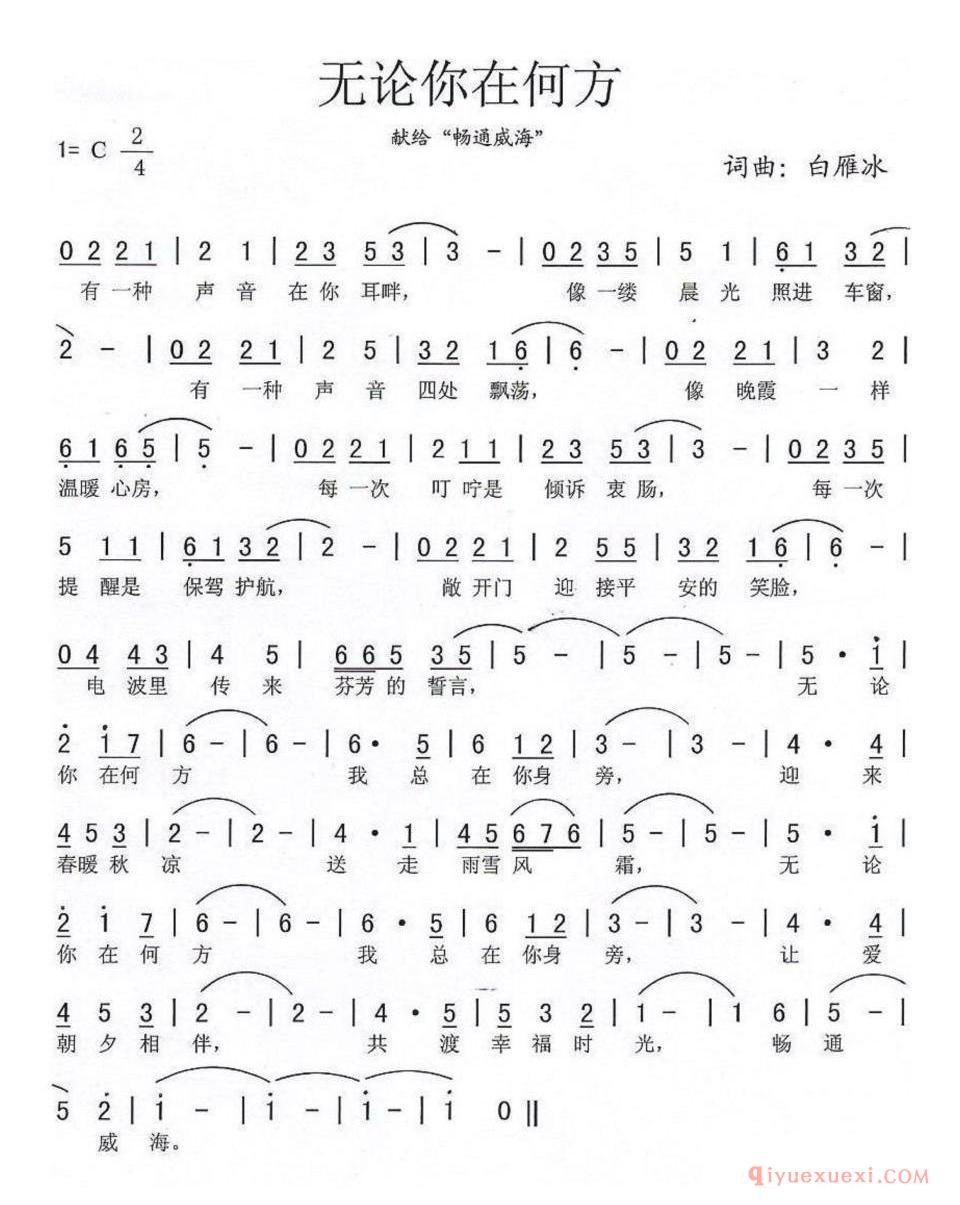 无论你在何方
献给“畅通威海”
1= C 2/4
词曲：白雁冰
0 2 2 1 | 2 1 | 2 3 5 3 | 3 - | 0 2 3 5 | 5 1 | 6 1 3 2 |
有一种 声 音 在 你 耳畔， 像 一缕 晨 光 照进 车窗，
2 - | 0 2 2 1 | 2 5 | 3 2 1 6 | 6 - | 0 2 2 1 | 3 2 |
有 一种 声 音 四处 飘荡， 像 晚霞 一 样
6 1 6 5 | 5 - | 0 2 2 1 | 2 1 1 | 2 3 5 3 | 3 - | 0 2 3 5 |
温暖 心房， 每 一次 叮 咛是 倾诉 衷 肠， 每 一次
5 1 1 | 6 1 3 2 | 2 - | 0 2 2 1 | 2 5 5 | 3 2 1 6 | 6 - |
提 醒是 保驾 护航， 敞 开门 迎 接平 安的 笑脸，
0 4 4 3 | 4 5 | 6 6 5 3 5 | 5 - | 5 - | 5 - | 5 · i |
电 波里 传 来 芬芳 的 誓言， 无 论
2 i 7 | 6 - | 6 - | 6 · 5 | 6 1 2 | 3 - | 3 - | 4 · 4 |
你 在何 方 我 总 在 你身 旁， 迎 来
4 5 3 | 2 - | 2 - | 4 · 1 | 4 5 6 7 6 | 5 - | 5 - | 5 · i |
春暖 秋 凉 送 走 雨雪 风 霜， 无 论
2 i 7 | 6 - | 6 - | 6 · 5 | 6 1 2 | 3 - | 3 - | 4 · 4 |
你 在 何 方 我 总 在 你身 旁， 让 爱
4 5 3 | 2 - | 2 - | 4 · 5 | 5 3 2 | 1 - | 1 6 | 5 - |
朝 夕 相 伴， 共 渡 幸 福 时 光， 畅 通
5 2 | i - | i - | i - | i 0 ||
威 海。
qiyuexuexi.COM